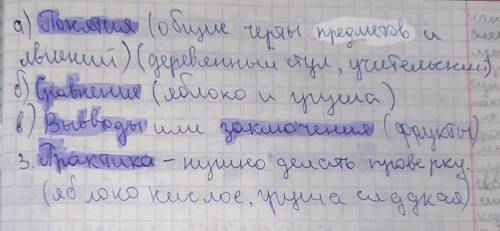 а) Понятия (общие черты предметов и
явлений) (деревянный стул, учительский)
б) Сравнение (яблоко и груша)
в) Выводы или заключения (фрукты)
3. Практика – нужно делать проверку.
(яблоко кислое, груша сладкая)